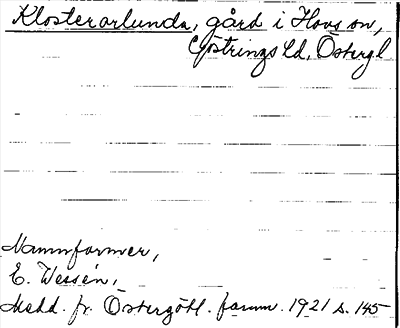 Klosterorlunda, gård i Hovs sn,
Göstrings hd, Östergl
Namnformer,
E. Wessén,
Medd. fr. Östergötl. fornm. 1921 s. 145